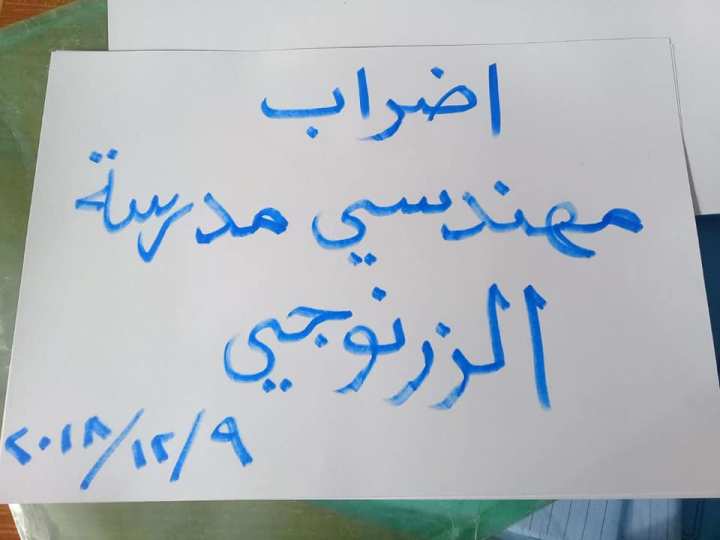 اضراب
مهندسي مدرسة
الزرنوجي
٢٠١٨/١٢/٩